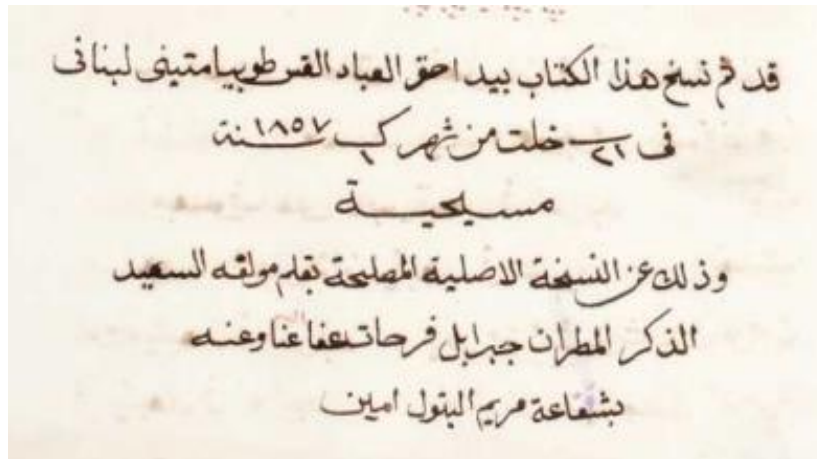 قد تم نسخ هذا الكتاب بيد احقر العباد القس طوبيا متيني لبناني
في ٢١ خلت من شهر ك ١ سنة ١٨٥٧
مسيحية
وذلك عن النسخة الاصلية المصلحة بقلم مولفه السعيد
الذكر المطران جبرايل فرحات عفا عنا وعنه
بشفاعة مريم البتول امين